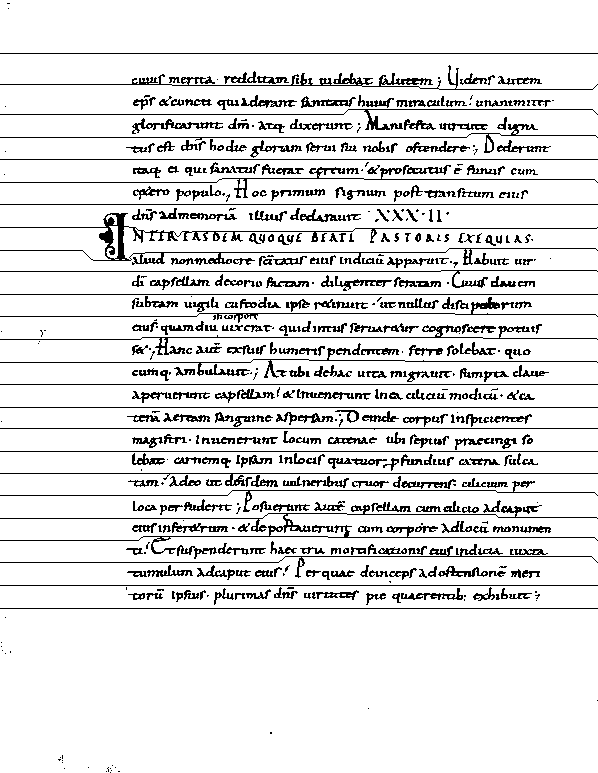 cuius merita redditam sibi uidebat salutem ; Uidens autem
eps̄ & cuncti qui aderant sanitatis huius miraculum ! unanimiter
glorificarunt dm̄ · atq; dixerunt ; Manifesta uirtute digna
tus est dn̄s hodie gloriam serui sui nobis ostendere ; Dederunt
itaq; ei qui sanatus fuerat cereum · & prosecutus ē funus cum
cetero populo ., Hoc primum signum post transitum eius
dn̄s ad memoriā illius declarauit XXX·II·
INTER EASDEM QUOQUE BEATI PASTORIS EXEQUIAS·
aliud non mediocre sc̄itatis eius indiciū apparuit ., Habuit uir
dī capsellam decorio factam · diligenter seratam · Cuius clauem
subtam uigili custodia ipse retinuit · ut nullus discipulorum
eius quamdiu uixerat in corpore · quid intus seruaretur cognoscere potuis
s& ., Hanc aut̄ ex suis humeris pendentem · ferre solebat · quo
cumq; ambulauit ; At ubi de hac uita migrauit · sumpta claue
aperuerunt capsellam ! & inuenerunt in ea ciliciū modicū · & ca
tenā aeream sanguine aspersam ., Deinde corpus inspicientes
magistri · inuenerunt locum catenae ubi sepius praecingi so
lebat carnemq; ipsam in locis quatuor profundius catena sulca
tam · Adeo ut de isdem uulneribus cruor decurrens · cilicium per
loca perfuderit ; Posuerunt aut̄ capsellam cum cilicio ad caput
eius in feretrum · & deportauerunt cum corpore ad locū monumen
ti ! Et suspenderunt haec tria mortificationis eius indicia iuxta
tumulum ad caput eius ! Per quae deinceps ad ostensionē meri
torū ipsius · plurimas dn̄s uirtutes pie quaerentib; exhibuit ;